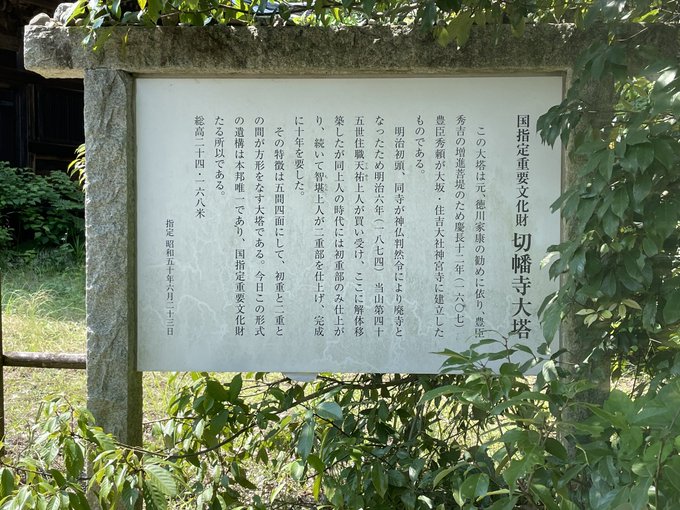 国指定重要文化財 切幡寺大塔
この大塔は元、徳川家康の勧めに依り、豊臣
秀吉の増進菩堤のため慶長十二年（一六〇七）
豊臣秀頼が大坂・住吉大社神宮寺に建立した
ものである。
明治初頭、同寺が神仏判然令により廃寺と
なったため明治六年（一八七四）当山第四十
五世住職天祐上人が買い受け、ここに解体移
築したが同上人の時代には初重部のみ仕上が
り、続いて智堪上人が二重部を仕上げ、完成
に十年を要した。
その特徴は五間四面にして、初重と二重と
の間が方形をなす大塔である。今日この形式
の遺構は本邦唯一であり、国指定重要文化財
たる所以である。
総高二十四・一六八米
指定 昭和五十年六月二十三日